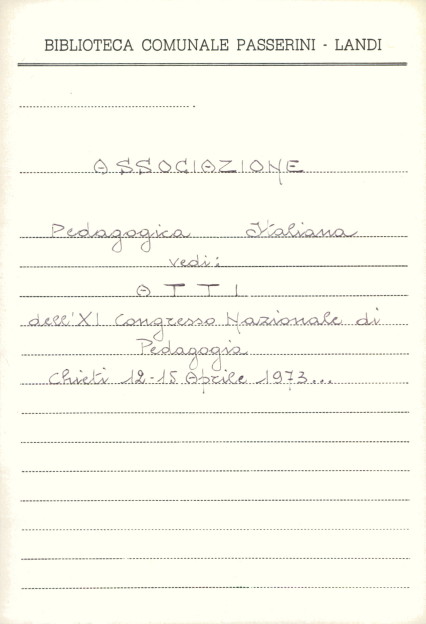 BIBLIOTECA COMUNALE PASSERINI - LANDI
ASSOCIAZIONE
Pedagogica Italiana
vedi:
ATTI
dell'XI Congresso Nazionale di
Pedagogia
Chieti 12-15 Aprile 1973...